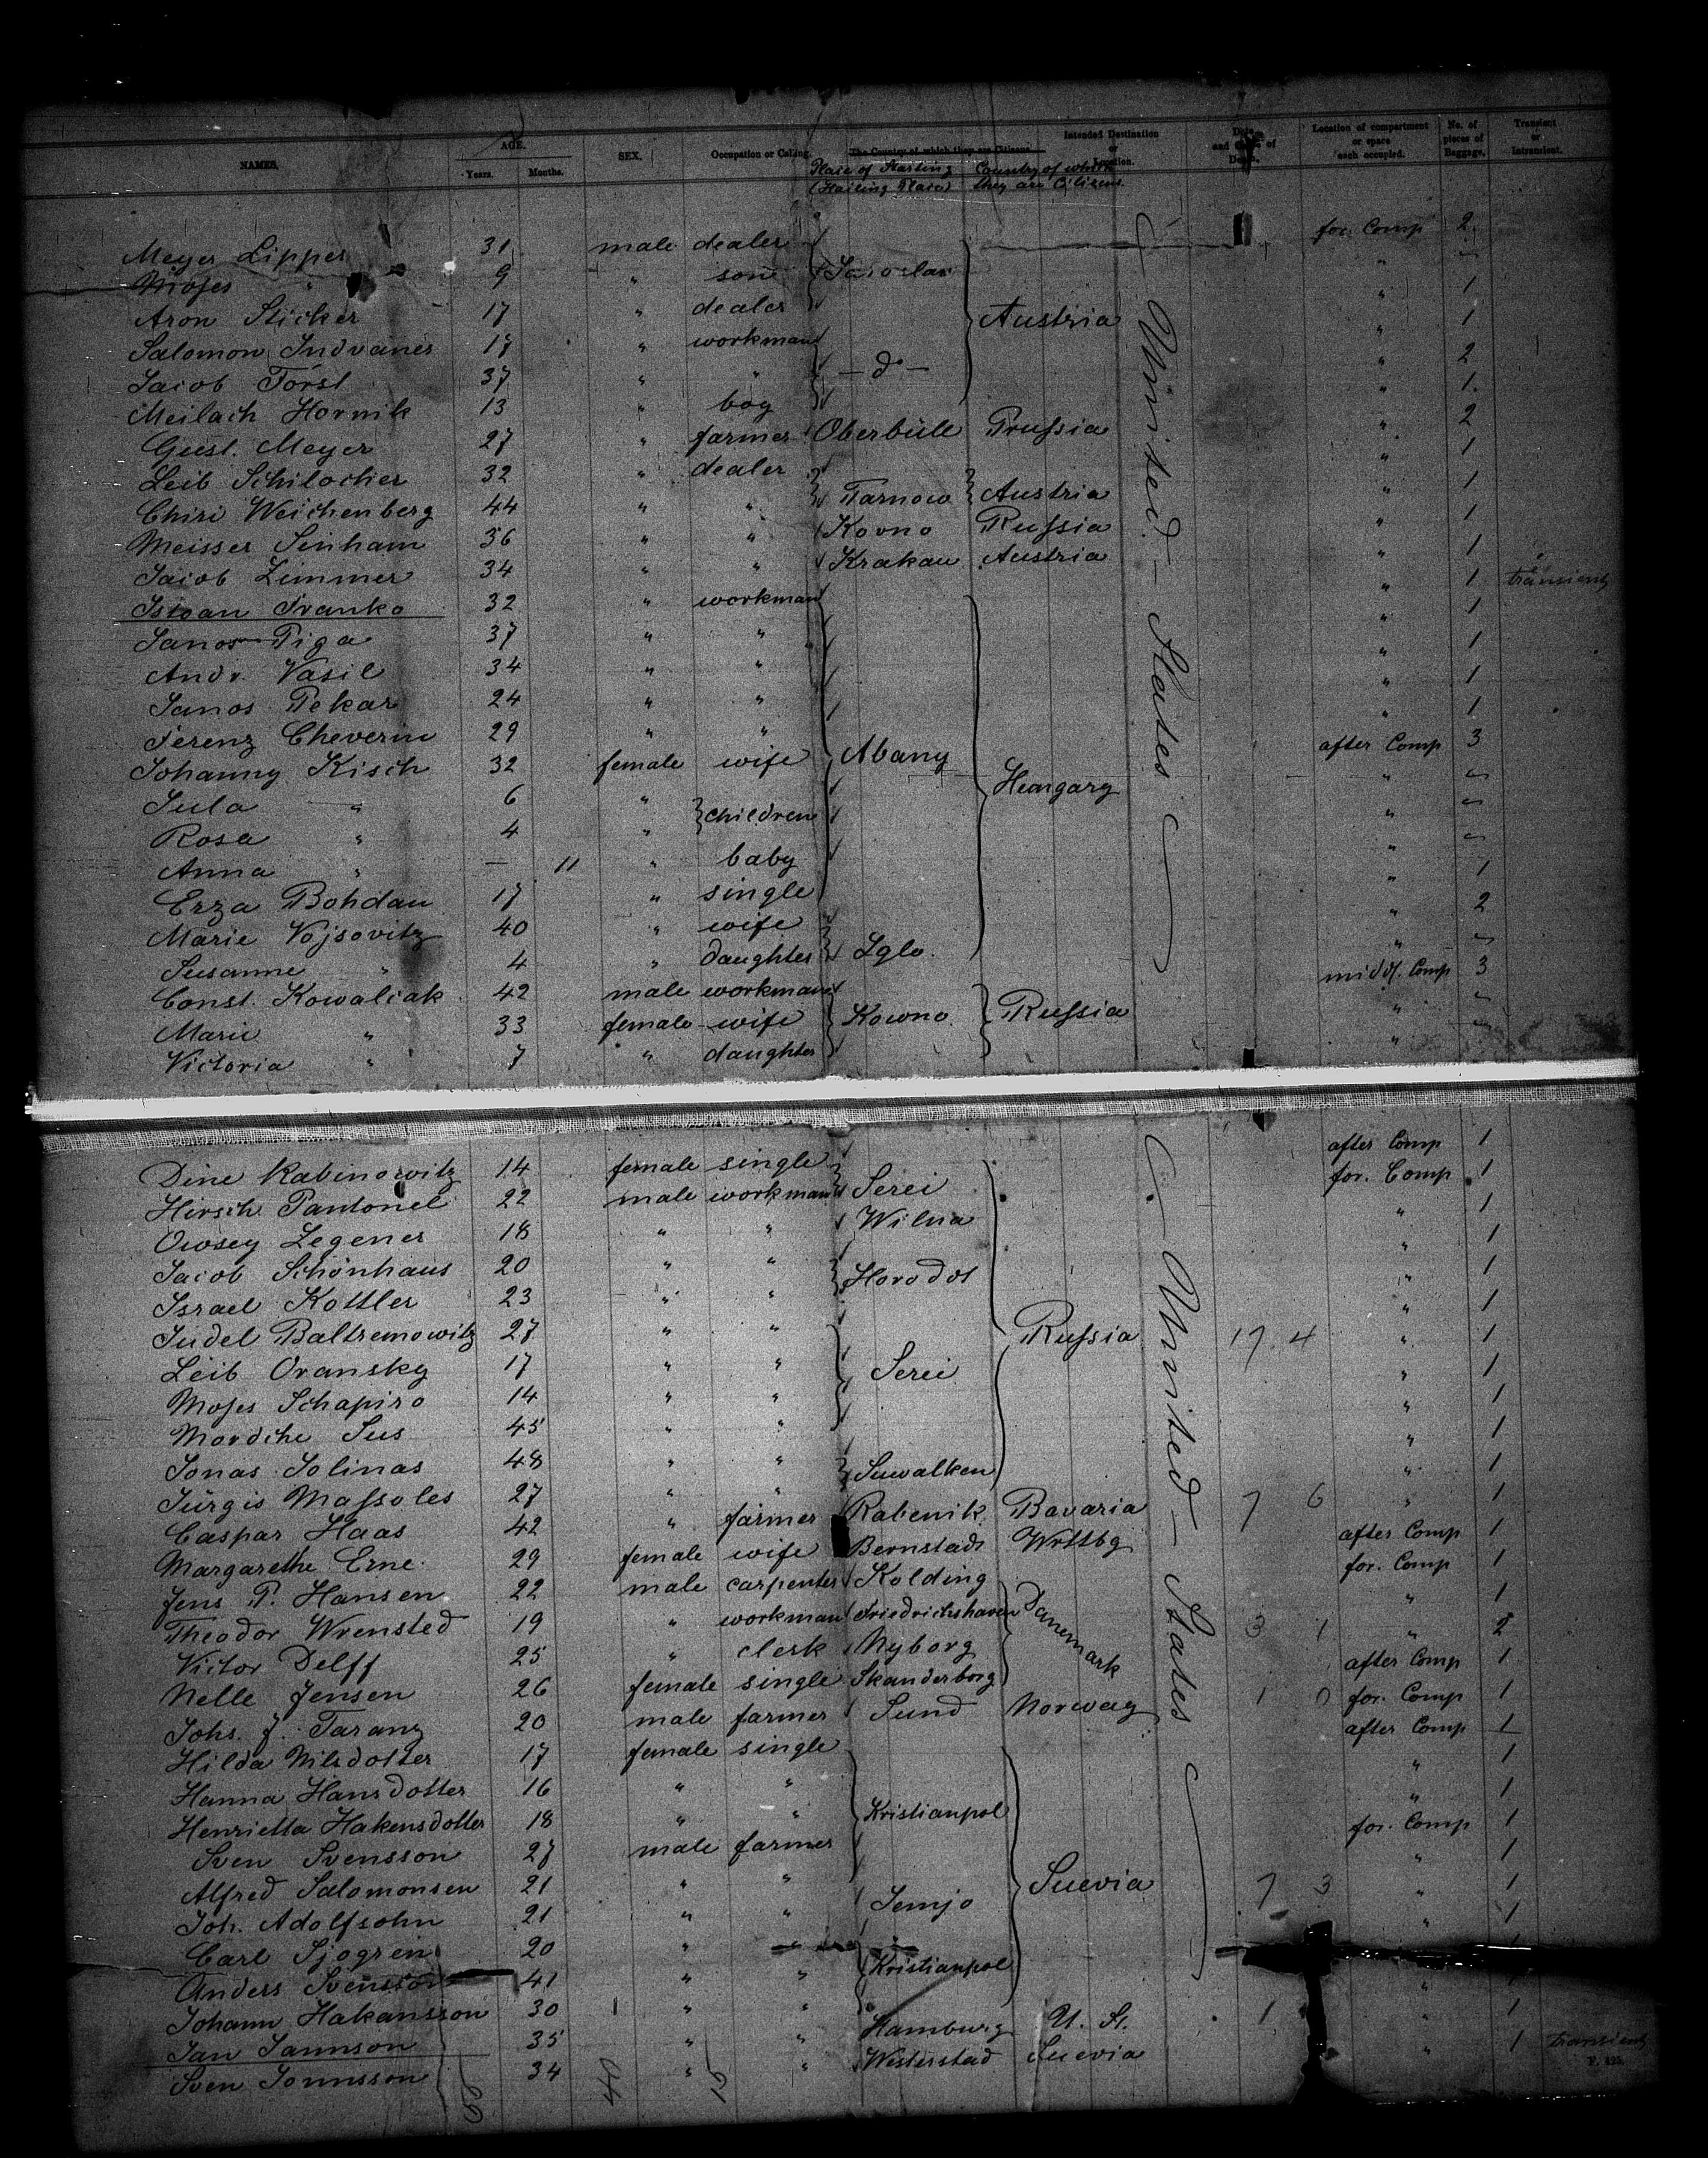 NAMES. AGE. Years. Months. SEX. Occupation or Calling. The Country of which they are Citizens. Intended Destination or Location. Date and Cause of Death. Location of compartment or space each occupied. No. of pieces of Baggage. Transient or Intransient.
Place of Starting (Hailing Place) Country of which they are Citizens
Meyer Lipper 31 male dealer for. Comp 2
Moses " 9 " son Jaroslau "
Aron Sticker 17 " dealer Austria " 1
Salomon 17 " workman " 1
Jacob Först 37 " " — do — " 2
Meilach Hornik 13 " boy " 1
Gust. Meyer 27 " farmer Oberbüll Prussia " 2
Leib Schilocher 32 " dealer " 1
Chiri Weichenberg 44 " " Tarnow Austria " 1
Meisser Sinham 36 " " Kovno Russia " 1
Jacob Zimmer 34 " " Krakau Austria " 1
Istvan Franko 32 " workman " 1 transient
Janos Piga 37 " " " 1
Andr. Vasil 34 " " " 1
Janos Pekar 24 " " " 1
Ferenz Cheverin 29 " " " 1
Johanny Kisch 32 female wife Abany Hungary after Comp 3
Jula " 6 " children "
Rosa " 4 " "
Anna " — 11 " baby "
Erza Bohdan 17 " single " 1
Marie Vojsovitz 40 " wife " 2
Susanne " 4 " daughter Iglo "
Const. Kowaliak 42 male workman midd. Comp 3
Marie " 33 female wife Kowno Russia "
Victoria " 7 " daughter "
United States
Dine Rabinowitz 14 female single after Comp 1
Hirsch Pantonel 22 male workman Serei for. Comp 1
Owsey Zegener 18 " " Wilna " 1
Jacob Schönhaus 20 " " " 1
Israel Kottler 23 " " Horodot " 1
Judel Baltremowitz 27 " " Russia " 1
Leib Oransky 17 " " Serei 17 4 " 1
Moses Schapiro 14 " " " 1
Mordche Sus 45 " " " 1
Jonas Solinas 48 " " " 1
Jürgis Massoles 27 " " Suwalken " 1
Caspar Haas 42 " farmer Rabenik Bavaria 7 6 " 1
Margarethe Erne 29 female wife Bernstadt Wrttbg after Comp 1
Jens P. Hansen 22 male carpenter Kolding Danemark for. Comp 1
Theodor Wrensted 19 " workman Friedrichshaven " 1
Victor Delff 25 " clerk Nyborg 3 1 " 2
Nelle Jensen 26 female single Skanderborg after Comp 1
Johs. J. Tarang 20 male farmer Sund Norway 1 0 for. Comp 1
Hilda Nilsdotter 17 female single after Comp 1
Hanna Hansdotter 16 " " " 1
Henrietta Hakensdotter 18 " " Kristianpol " 1
Sven Svensson 27 male farmer for. Comp 1
Alfred Salomonsen 21 " " Suevia " 1
Joh. Adolfsohn 21 " " Semjo 7 3 " 1
Carl Sjogren 20 " " 1
Anders Svensson 41 " " Kristianpol
Johann Hakansson 30 1 " " "
Jan Jannson 35 " " Hamburg U. St. 1 " 1
Sven Jonnsson 34 " " Westerstad Suevia " 1 transient
United States